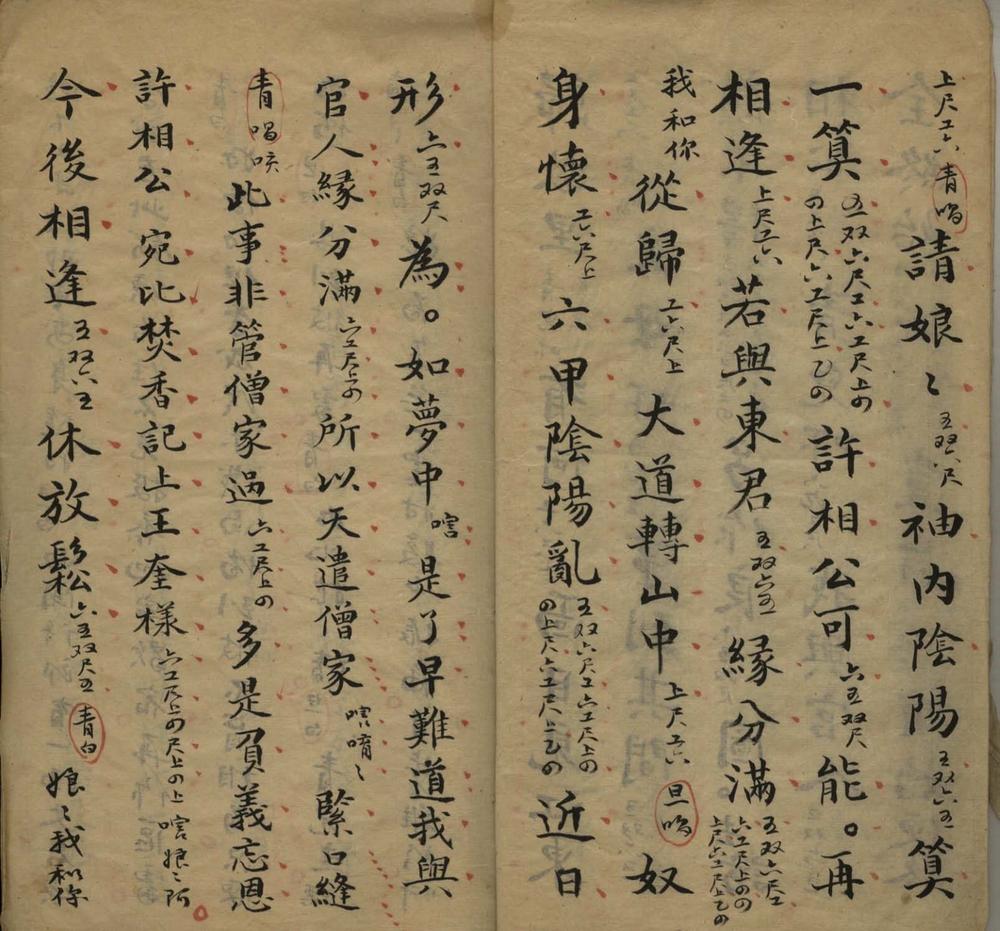 上尺工六 青唱 請娘〻 五双六尺 袖内陰陽 五双六五 算
一算 五双六尺工六工尺上の の上尺六工尺上乙の 許相公可 六五双尺 能。再
相逢 上尺工六 若與東君 五双六五 緣分滿 五双六尺工 六工尺上のの 上尺六工尺上乙の
我和你 從歸 工六尺上 大道轉山中 上尺工六 旦唱 奴
身懷 工六尺上 六甲陰陽亂 五双六尺工六工尺上の の上尺六工尺上乙の 近日
形 六五双尺 為。如夢中 嗐 是了早難道我與
官人緣分滿 六工尺上の 所以天遣僧家 嗐唷〻 緊口縫
青唱 唉 此事非管僧家過 六工尺上の 多是負義忘恩
許相公宛比焚香記上王奎樣 六工尺上の尺上の上 嗐娘〻阿
今後相逢 五双六五 休放鬆 六五双尺五 青白 娘〻我和你